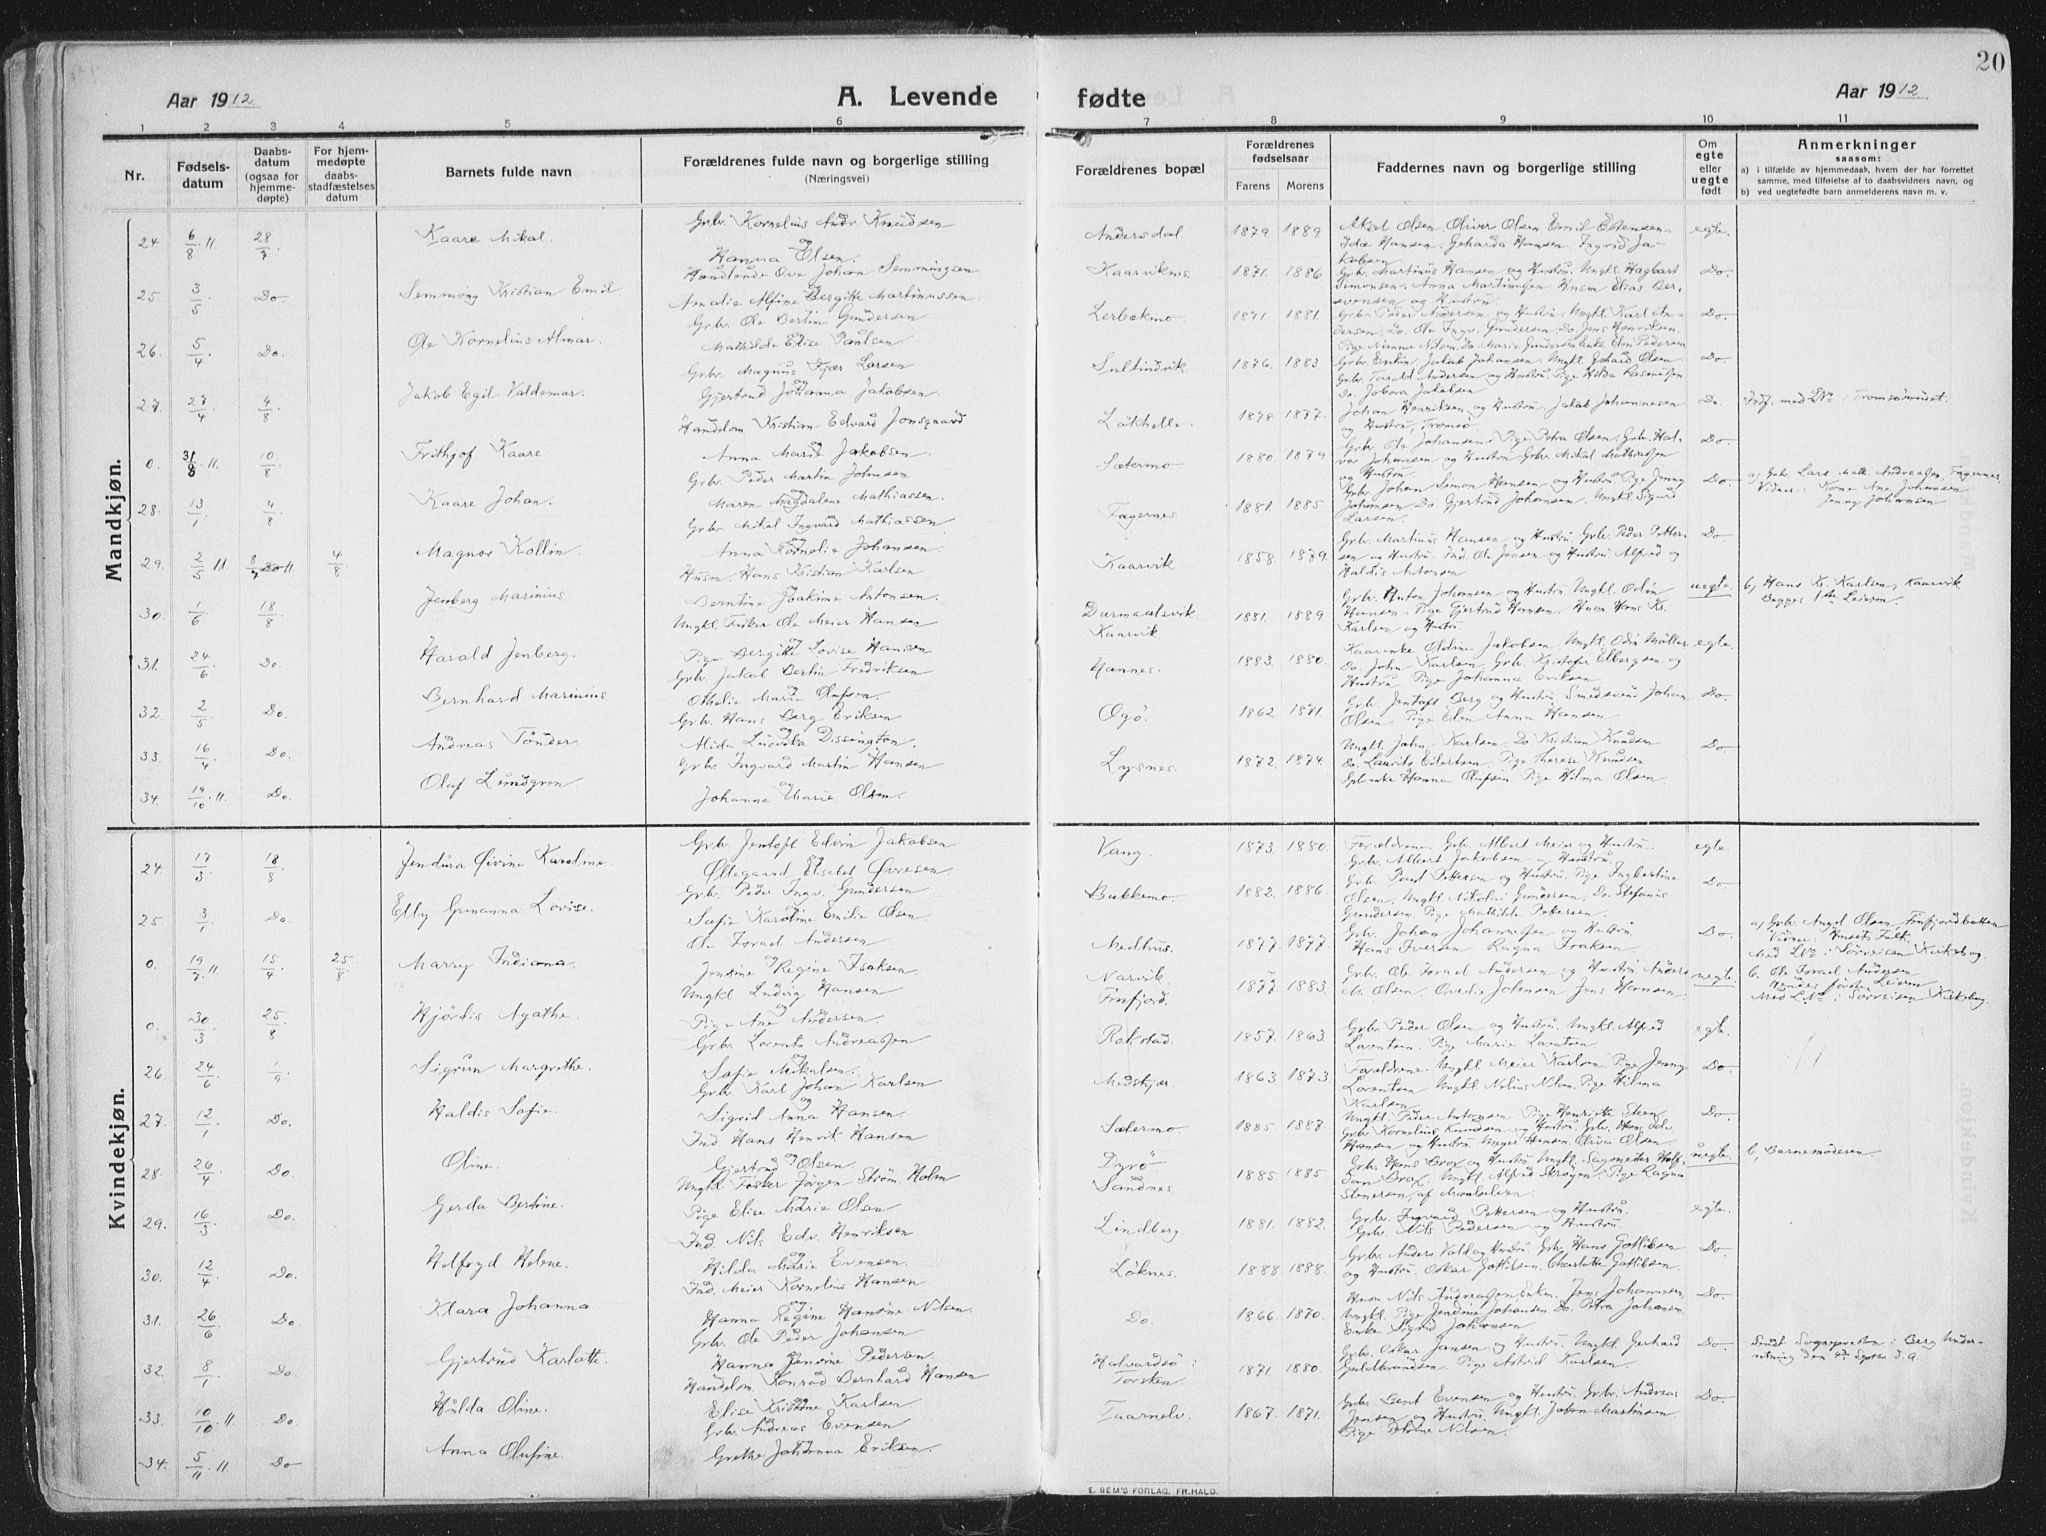 20
Aar 1912
A. Levende
fødte
Aar 1912
1 2 3 4 5 6 7 8 9 10 11
Nr.
Fødsels-
datum
Daabs-
datum
(ogsaa for
hjemme-
døpte)
For hjem-
medøpte
daabs-
stadfæstelses
datum
Barnets fulde navn
Forældrenes fulde navn og borgerlige stilling
(Næringsvei)
Forældrenes bopæl
Forældrenes
fødselsaar
Farens Morens
Faddernes navn og borgerlige stilling
Om
egte
eller
uegte
født
Anmerkninger
saasom:
a) i tilfælde av hjemmedaab, hvem der har forrettet
samme, med tilføielse af to daabsvidners navn, og
b) ved uegtefødte barn anmelderens navn m. v.
Mandkjøn.
24. 6/8 11. 28/7. Kaare Mikal.
Grbr. Kornelius Andr. Knudsen
og
Hanna Olsen.
Andersdal. 1879. 1889.
Aksel Olsen, Oliver Olsen, Emil Estensen
Ida Hansen, Geharda Hansen, Ingrid Ja-
kobsen
egte.
25. 3/5 Do. Semming Kristian Emil.
Handlende Ove Johan Semmingsen
og
Amalie Alfine Bergitte Martinussen.
Kaarviknes. 1871. 1886.
Grbr. Martinus Hansen og Hustru. Ungkl. Hagbart
Simonsen. Anna Martinsen
Do.
26. 5/4 Do. Ole Kornelius Almar.
Grbr. Ole Bertin Gundersen
Mathilde Elise Paulsen
Lerbækmo. 1871. 1881.
Grbr. Peder Andersen og Hustru. Ungkl. Karl An-
dersen. Do. Ole Ingv. Gundersen. Do. Jens Henriksen.
Do.
27. 27/4 4/8 Jakob Egil Valdemar.
Grbr. Magnus Kjær Larsen
og
Gjertrud Johanna Jakobsen
Sultindvik 1876. 1883.
Grbr. Enkem. Jakob Johansen. Ungkl. Gehard Olsen.
Grbr. Torald Andersen og Hustru. Pige Hilda Rasmussen
Do.
0. 31/8 11. 10/8 Frithjof Kaare
Handelsm. Kristian Edvard Jonsgaard
og
Anna Marie Jakobsen.
Løkhelle. 1878. 1877.
Johan Henriksen og Hustru. Jakob Johannesen
og Hustru, Tromsø
Do.
Indf. med L No i Tromsøsundet.
28. 13/1 4/8 Kaare Johan.
Grbr. Peder Martin Johnsen
Maren Magdalene Mathiassen.
Sætermo 1880. 1879.
Grbr. Ole Johansen. Pige Petra Olsen. Grbr. Hal-
vor Johansen og Hustru. Grbr. Mikal Mathiassen
og Hustru
Do.
29. 2/5 11. 8/7 Do 11 4/8 Magnor Kollin.
Grbr. Mikal Ingvard Mathiassen
og
Anna Kornelie Johansen.
Fagernes 1881. 1885.
Grbr. Johan Simon Hansen og Hustru. Pige Jenny
Johansen. Do Gjertrud Johansen. Ungkl. Sigurd
Larsen.
Do.
a, Grbr. Lars Math. Andreassen, Fagernes
Vidner: Kone Ane Johansen
Jenny Johansen
30. 1/6 18/8 Jenberg Marinius
Husm. Hans Kristian Karlsen
og
Berntine Joakime Antonsen.
Kaarvik 1858. 1879.
Grbr. Martinus Hansen og Hustru. Grbr. Peder Petter-
sen og Hustru. Ind. Ole Jensen og Hustru Alfred og
Haldis Antonsen
Do.
31. 24/6 Do. Harald Jenberg.
Ungkl. Fisker Ole Meier Hansen
og
Pige Bergitte Lovise Hansen
Durmaalsvik
Kaarvik 1881. 1889.
Grbr. Anton Johansen og Hustru. Ungkl. Odin
Hansen. Pige Gjertrud Hansen. Husm Hans Kr.
Karlsen og Hustru.
uegte.
b, Hans K. Karlsen, Kaarvik
Begges 1ste Leierm.
32. 2/5 Do. Bernhard Marinius
Grbr. Jakob Bertin Fredriksen
og
Othelie Marie Olufsen.
Hannes. 1883. 1880.
Do. John Karlsen, Grbr. Kristofer Elbergsen og
Hustru, Pige Johanna Eriksen
egte.
33. 16/4 Do. Andreas Tønder.
Grbr. Hans Berg Eriksen
og
Alida Ludvika Dissington.
Ogö. 1862 1871.
Grb. Jentoft Berg og Hustru. Smedsvend Johan
Olsen. Pige Elen Anna Hansen
Do.
34. 19/10 11. Do. Olaf Lundgren
Grbr. Ingvard Martin Hansen
og
Johanna Marie Olsen.
Lysnes. 1872. 1874.
Ungkl. John Karlsen. Do Kristian Knudsen
Do. Laurits Edertsen. Pige Therese Knudsen
Grb.enke Hanna Olufsen. Pige Hilma Olsen.
Do
Kvindekjøn.
24. 17/3 18/8 Jendina Øivine Karoline.
Grbr. Jentoft Edvin Jakobsen
Oldegaard Elisabet Øvresen.
Vang. 1873. 1880.
Forældrene. Grbr. Albert Meier og Hustru.
Grbr. Albert Jakobsen og Hustru.
egte.
25. 3/1 Do. Elly Gunanna Lovise.
Grbr. Peder Ingv. Gundersen
Sofie Karoline Emilie Olsen.
Bukkemo 1882. 1886.
Grbr. Paul Pettersen og Hustru. Pige Ingbertine
Olsen. Ungkl. Nikolai Gundersen. Do. Stefanus
Gundersen. Pige Mathilde Pettersen.
Do
0. 19/7 11 15/4 25/8 Marry Indiana.
Ole Israel Andersen
og
Jensine Regine Isaksen
Medhus. 1877. 1877.
Grbr. Johan Johannessen og Hustru
Hans Iversen Ragna Isaksen.
Do.
a, Grbr. Angel Olsen, Finfjordbotten
Med L No i Sørreisen Kirkebog.
0. 30/3 25/8 Hjördis Agathe.
Ungkl Ludvig Hansen
og
Pige Ane Andersen.
Narvik.
Finfjord. 1877 1883.
Grbr. Ole Israel Andersen og Hustru Anders
M. Olsen. Ovedie Johansen Jens Hansen.
uegte.
b. Ole Israel Andersen
Hendes første Leierm
Med L No i Sørreisen Kirkebog.
26. 24/6 1/9 Sigrun Margrethe.
Grbr. Lorents Andreassen
og
Sofie Mikalsen.
Rokstad. 1857. 1863.
Grbr. Peder Olsen og Hustru. Ungkl. Alfred
Lorentsen. Pige Marie Lorentsen.
egte.
27. 12/1 Do. Haldis Sofie.
Grbr. Karl Johan Karlsen
og
Sigrid Anna Hansen.
Medskjær. 1863 1873.
Forældrene. Ungkl. Meier Karlsen. Pige Jenny
Lorentsen Ungkl. Nelius Nilsen. Pige Hilma
Karlsen
Do.
28. 26/4 Do. Oline.
Ind. Hans Henrik Hansen
og
Gjertrud Olsen.
Sætermo 1885. 1887.
Ungkl. Peder Antonsen Pige Henriette Steen
Grbr. Kornelius Knudsen og Hustru.
Do.
29. 16/3 Do. Gerda Bertine.
Ungkl. Fisker Jörgen Ström Holm
Pige Elise Marie Olsen
Dyrö
Sandnes 1885. 1885.
Grbr. Hans Brox og Hustru
uegte.
b, Barnemoderen.
30. 12/4 Do. Helfryd Helene.
Ind. Nils Edv. Henriksen
og
Hilda Marie Evensen.
Lindberg. 1881. 1882.
Grbr. Ingvard Pettersen og Hustru.
Grbr. Nils Pedersen og Hustru.
egte.
31. 26/6 Do. Klara Johanna
Ind. Meier Kornelius Hansen
og
Hanna Regine Hansine Nilsen.
Löknes. 1888. 1888.
Grbr. Anders Vald og Hustru. Grbr. Hans Gotlibsen
og Hustru. Oskar Gotlibsen. Charlotte Gotlibsen.
Do.
32. 8/1 Do. Gjertrud Karlotte.
Grbr. Ole Peder Johansen
Hanna Jensine Pedersen.
Do. 1866. 1870.
Ungkl. Pige Jendine Johansen Do. Petra Johansen.
Enke Sigrid Johansen.
Do.
33. 10/10 11. Do. Hulda Oline.
Handelsm. Konrad Bernhard Hansen
Elise Kristine Karlsen
Halvardsö i
Torsken. 1871. 1880.
Grbr. Oskar Jensen og Hustru. Ungkl. Gerhard
Guldbrandsen. Pige Astrid Karlsen.
Do.
Sendt Sognepresten i Berg Under-
retning
34. 5/11 11. Do Anna Olufine.
Grbr. Andreas Evensen
Grethe Johanna Eriksen.
Taarnelv. 1867. 1871.
Grbr. Bent Evensen og Hustru. Grbr. Andreas
Jensen og Hustru. Ungkl. Johan Martinsen
Pige Petrine Nilsen.
Do.
E. SEM'S FORLAG, FR.HALD.